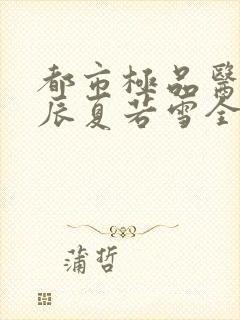 都市極品醫
辰夏若雪全
蒲哲